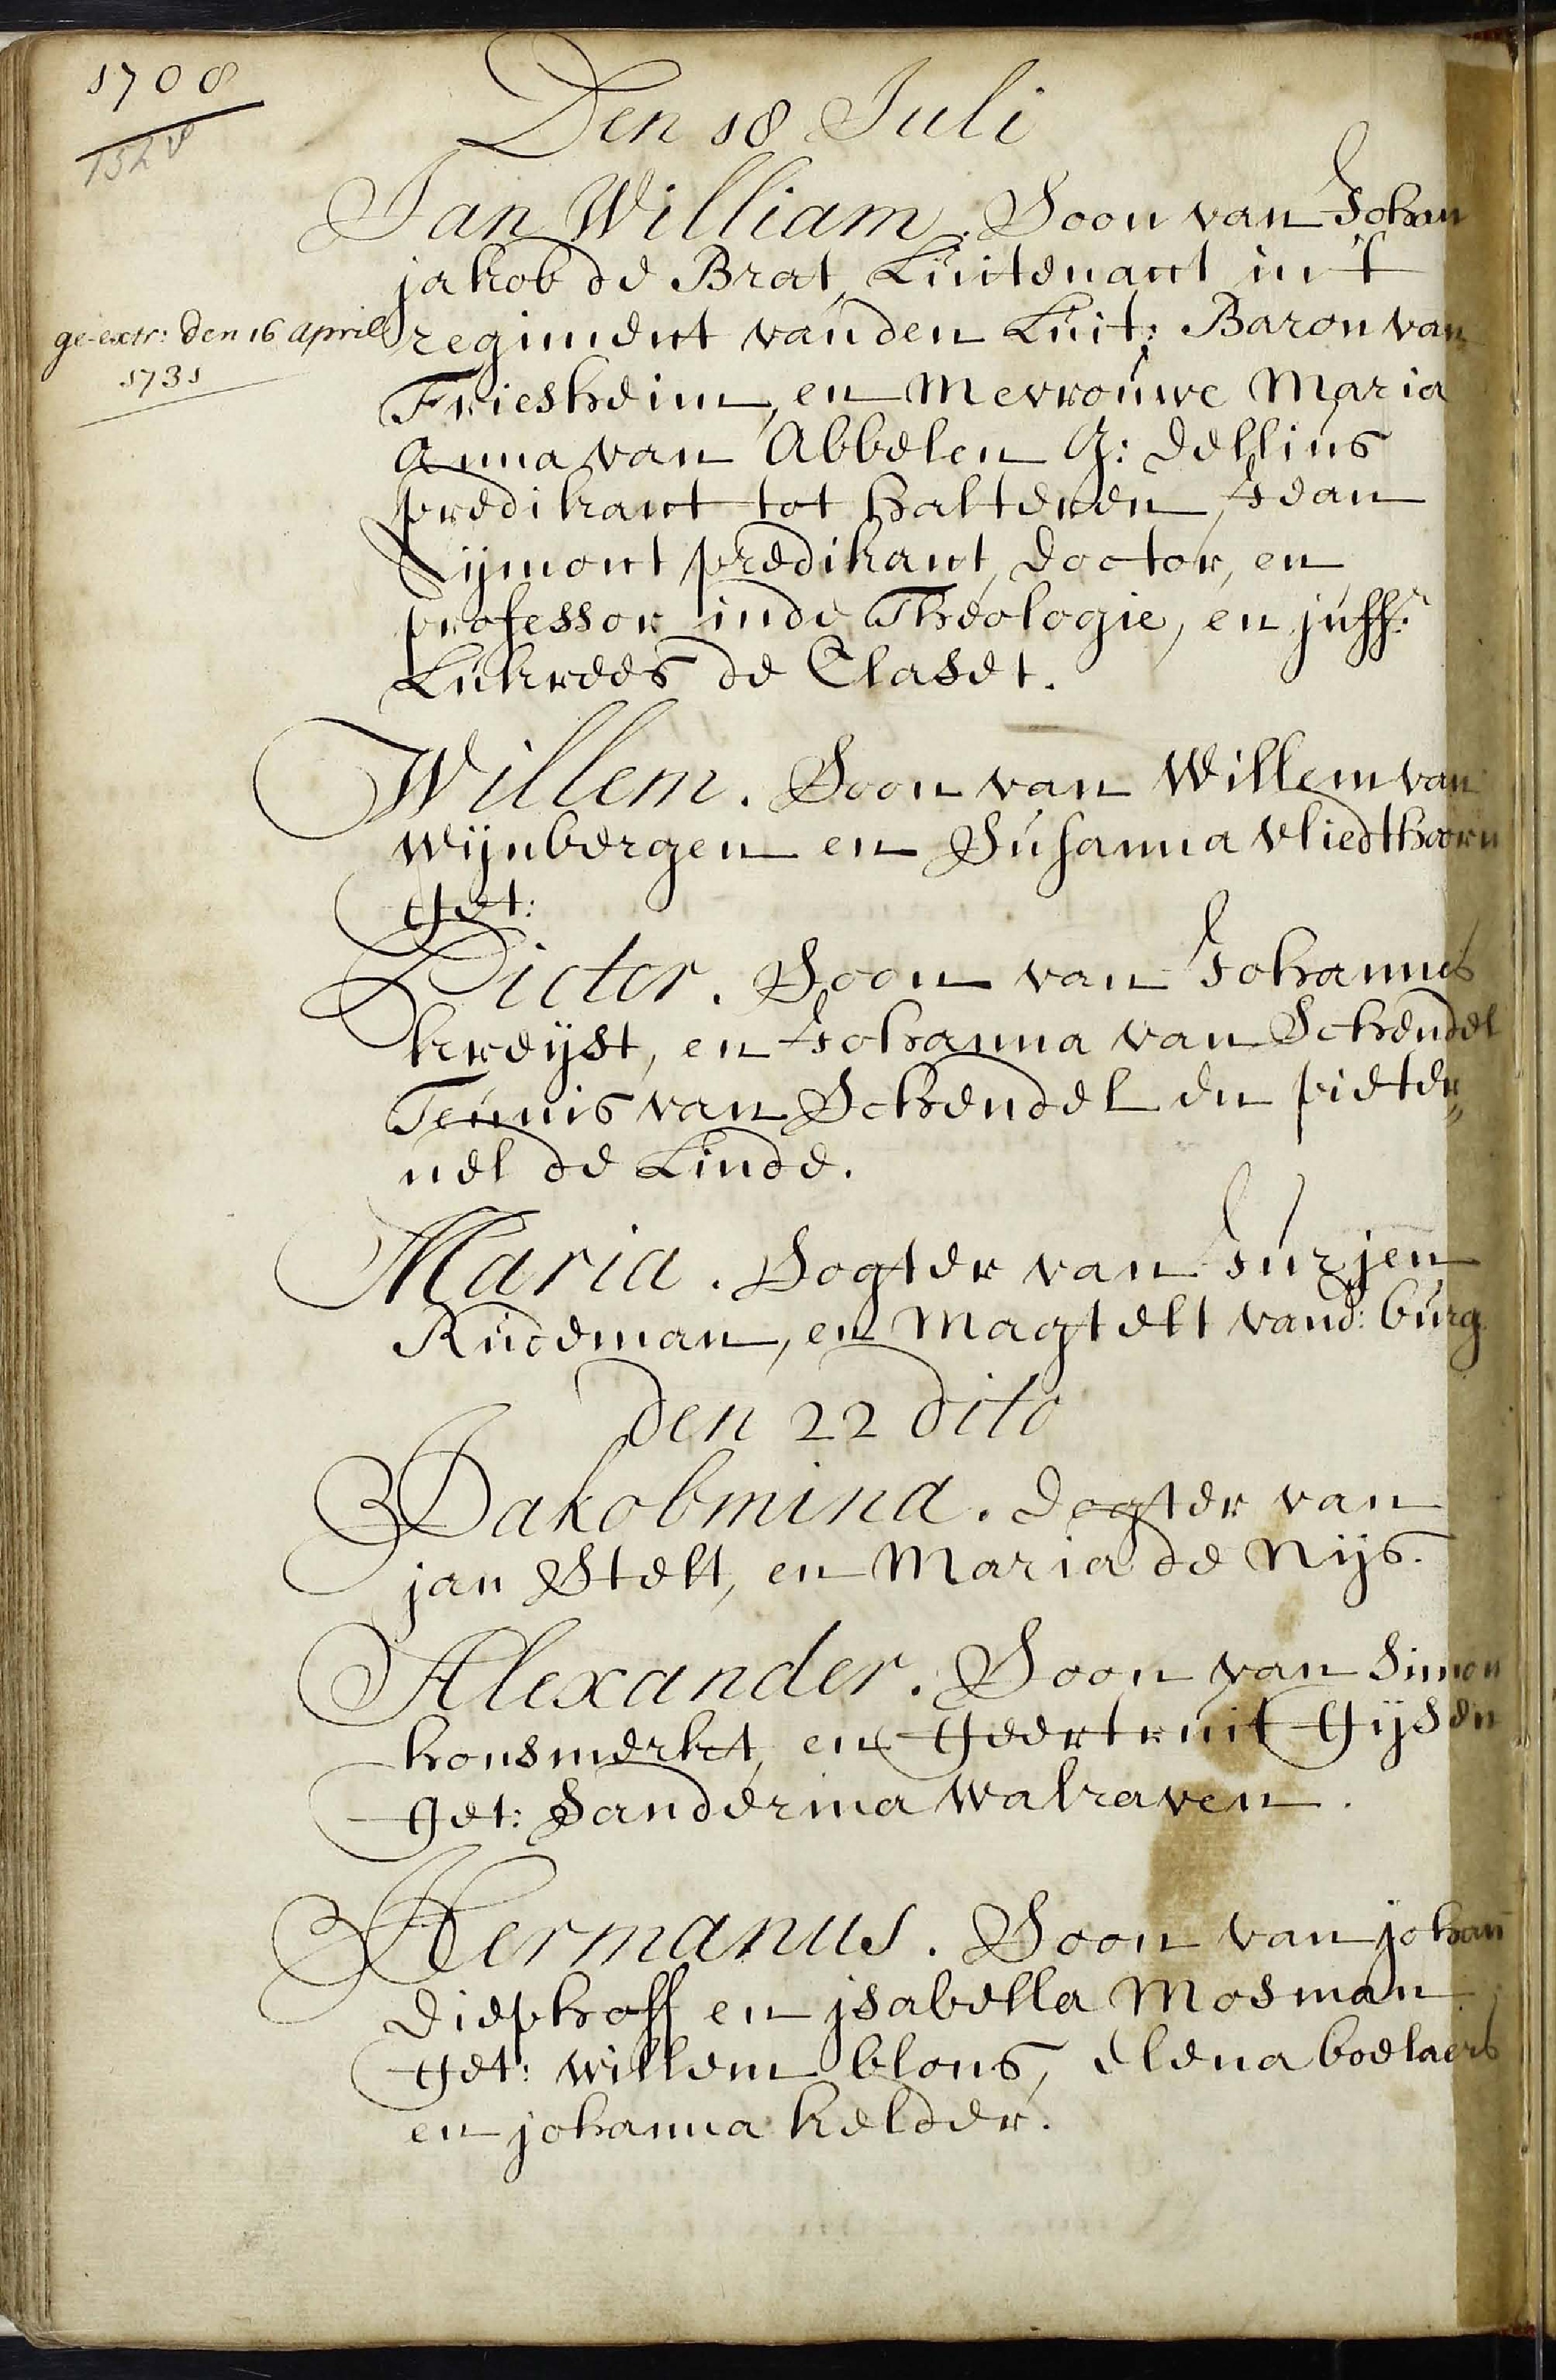 1708
152 v
Den 18 Juli
Jan William. Soon van Johan
jakob de Brat, Luitenant in 't
ge-extr: den 16 april
1731
regiment vanden Luit: Baron van
Friesheim, en Mevrouwe Maria
Anna van Abbelen G: Dellius
predikant tot Halteren, Jean
Rymont predikant, Doctor, en
professor inde Theologie, en juffr:
Lukrees de Claset.
Willem. Soon van Willem van
Wijnbergen en Susanna Vliedthoorn
Get:
Pieter. Soon van Johannes
kreijst, en Johanna van Schendel
Teunis van Schendel en pieter„
nel de Linde.
Maria. Dogter van Jurjen
Rudeman, en Magtelt vand: burg
Den 22 dito
Jakobmina. Dogter van
jan Stelt, en Maria de Nijs.
Alexander. Soon van Simon
konsmerkt, en Geertruit Gijsen
get: Sanderina Walraven.
Hermanus. Soon van johan
Diephoff en jsabella Mosman
Get: willem blons, elena boelaers
en johanna kelder.